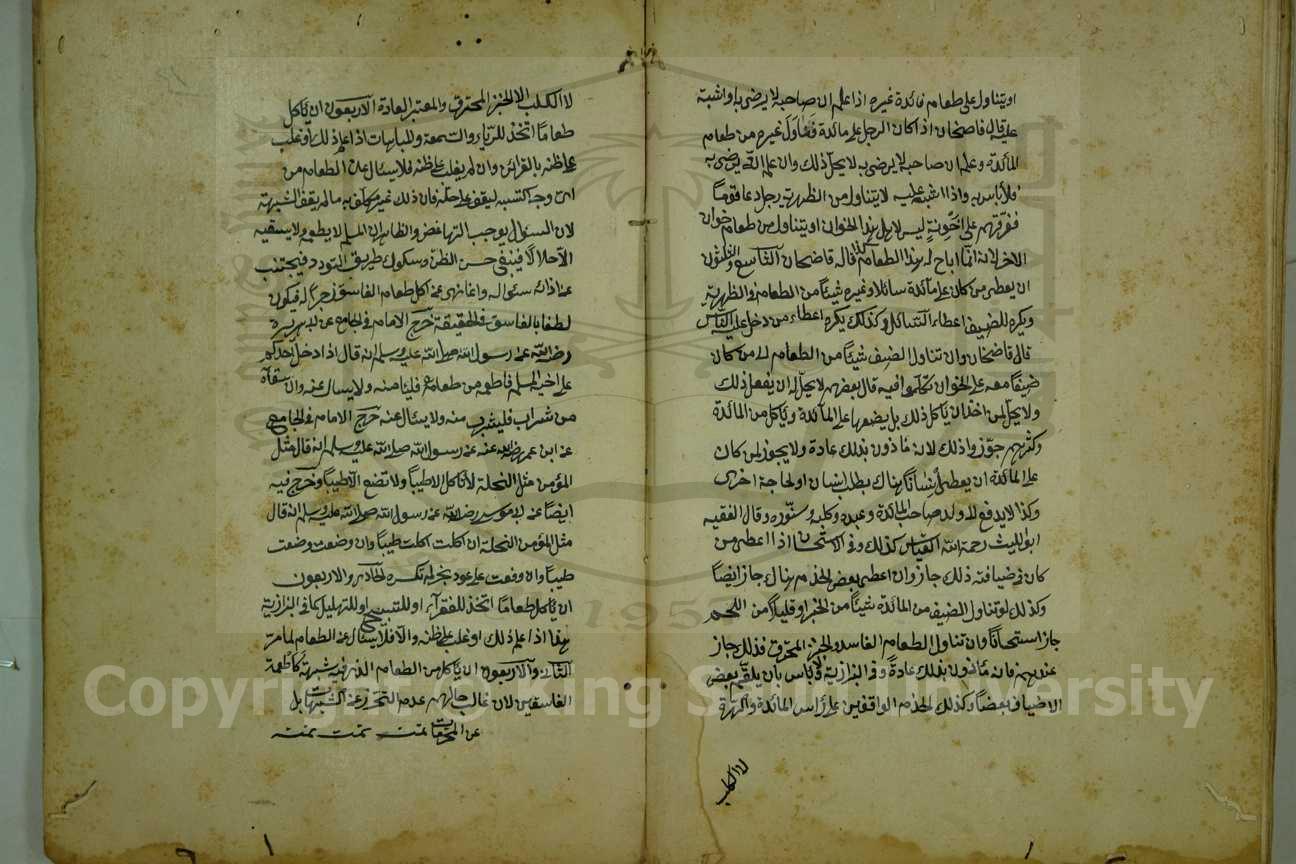 او يتناول على طعام مائدة غيره اذا علم ان صاحبه لا يرضى به او اشتبه
عليه قال قاضيخان اذا كان الرجل على مائدة فناول غيره من طعام
المائدة وعلم ان صاحبه لا يرضى به لا يحل ذلك وان علم انه يرضى به
فلا بأس به واذا اشتبه عليه لا يتناول من الظهرية رجل دعا قوما
ففرقهم على اخونة ليس لاهل هذا الخوان او يتناول من طعام خوان
الاخر لانه انما اباح له هذا الطعام كذا قاله قاضيخان التاسع والثلثون
ان يعطى من كان على مائدة سائلا وغيره شيئا من الطعام وفى الظهرية
ويكره للضيف اعطاء السائل وكذلك يكره اعطاء من دخل عليه الناس
قال قاضيخان وان تناول الضيف شيئا من الطعام الى من كان
ضيفا معه على الخوان تكلموا فيه قال بعضهم لا يحل له ان يفعل ذلك
ولا يحل لمن اخذ ان يأكل ذلك بل يضعها على المائدة ويأكل من المائدة
وكثرهم جوزوا ذلك لانه مأذون بذلك عادة ولا يجوز لمن كان
على المائدة ان يعطى انسانا هناك بطلب انسان او لحاجة اخرى
وكذا لا يدفع الى ولد صاحب المائدة وعبده وكلبه وسنوره وقال الفقيه
ابو الليث رحمة الله القياس كذلك وفى الاستحسان اذا اعطى من
كان فى ضيافته ذلك جاز وان اعطى بعض الخدم هناك جاز ايضا
وكذلك لو تناول الضيف من المائدة شيئا من الخبز او قليلا من اللحم
جاز استحسانا وان تناول الطعام الفاسد والخبز المحترق فذلك جاز
عندهم فانه مأذون بذلك عادة وفى البزازية لا بأس بان يلقم بعض
الاضياف بعضا وكذلك الخدم الواقفين على رأس المائدة والهرة
لا الكلب
لا الكلب الا الخبز المحترق والمعتبر العادة الاربعون ان يأكل
طعاما اتخذ للرياء والسمعة وللمباهات اذا علم ذلك او غلب
على ظنه بالقرائن وان لم يغلب على ظنه فلا يسئال عن الطعام من
اين وجه اكتسبه ليقف على حله فان ذلك غير مكلف به ما لم يقف الشبهة
لان السئوال يوجب التباغض والظاهر ان المسلم لا يطعم ولا يسقيه
الا حلالا فينبغى حسن الظن وسكوك طريق التودد فيجتنب
عن اذائه سئواله وانما نهى عن اكل طعام الفاسق زجرا له فيكون
لطفا بالفاسق فى الحقيقة خرج الامام فى الجامع عن ابى هريرة
رضى الله عنه رسول الله صلى الله عليه وسلم انه قال اذا دخل احدكم
على اخيه المسلم فاطعم من طعامه فليأ منه ولا يسال عنه وان سقاه
من شراب فليشرب منه ولا يسئال عنه خرج الامام فى الجامع
عن ابن عمر رضى الله عنه عن رسول الله صلى الله عليه وسلم انه قال مثل
المؤمن مثل النحلة لا تأكل الا طيبا ولا تضع الا طيبا وخرج فيه
ايضا عن ابى موسى رضى الله عنه رسول الله صلى الله عليه وسلم انه قال
مثل المؤمن النحلة ان اكلت اكلت طيبا وان وضعت وضعت
طيبا وان وقعت على عود نخر لم تكسره الحادى والاربعون
ان يأكل طعاما اتخذ للفقراء او للتسبيح او للتهليل كما فى البزازية
هذا اذا علم ذلك او غلب على ظنه والا فلا يسئال عن الطعام لما مر
الثانى والاربعون ان يأكل من الطعام الذى فيه شبهة كاطعمة
الفاسقين لان غالب حالهم عدم التحرز عن الشبهات بل
عن المحرمات تمت تمت تمت
Copyright © King Saud University
1957